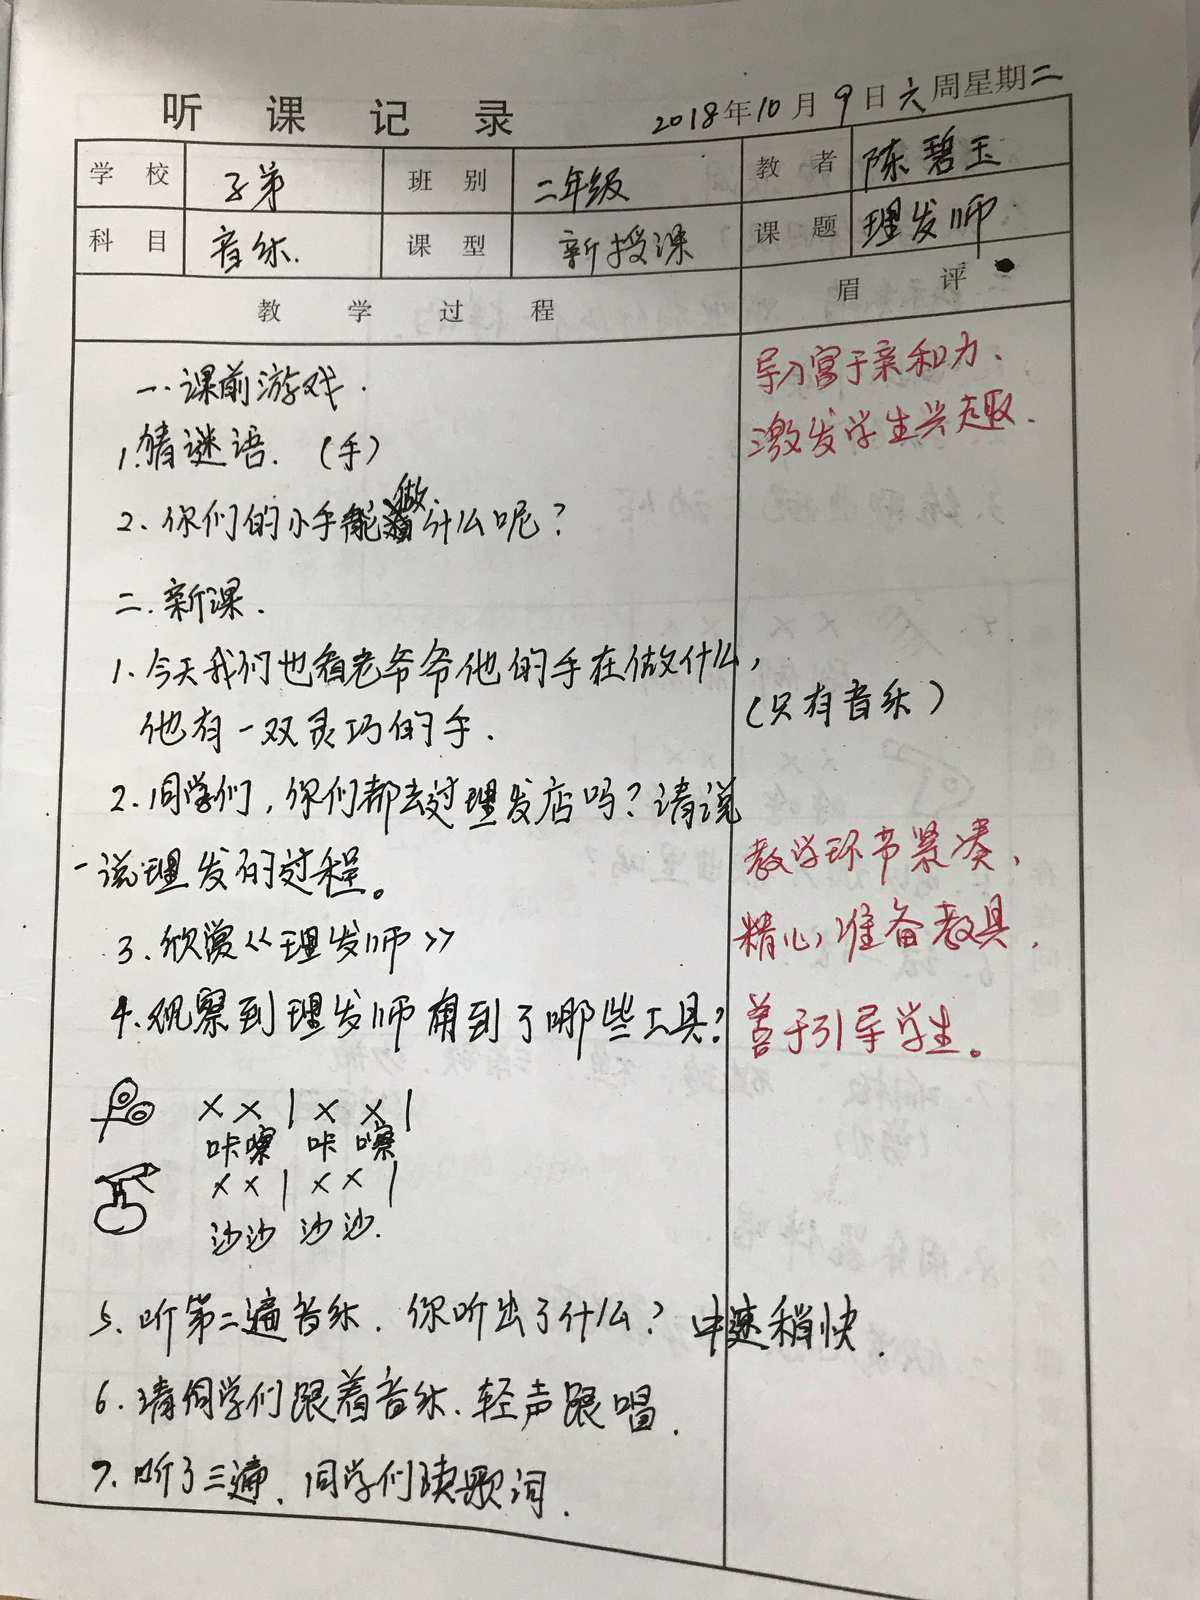 听课记录 2018年10月9日六周星期二
学校 子弟 班别 二年级 教者 陈碧玉
科目 音乐. 课型 新授课 课题 理发师
教学过程 眉评
一.课前游戏. 导入富于亲和力.
激发学生兴趣.
1.猜谜语.(手)
2.你们的小手能做什么呢?
二.新课.
1.今天我们也看老爷爷他的手在做什么,
他有一双灵巧的手. (只有音乐)
2.同学们,你们都去过理发店吗?请说
一说理发的过程。 教学环节紧凑,
3.欣赏《理发师》 精心准备教具.
4.观察到理发师用到了哪些工具? 善于引导学生。
X X | X X |
咔嚓 咔嚓
X X | X X |
沙沙 沙沙.
5.听第二遍音乐.你听出了什么?中速稍快.
6.请同学们跟着音乐.轻声跟唱.
7.听了三遍、同学们读歌词.